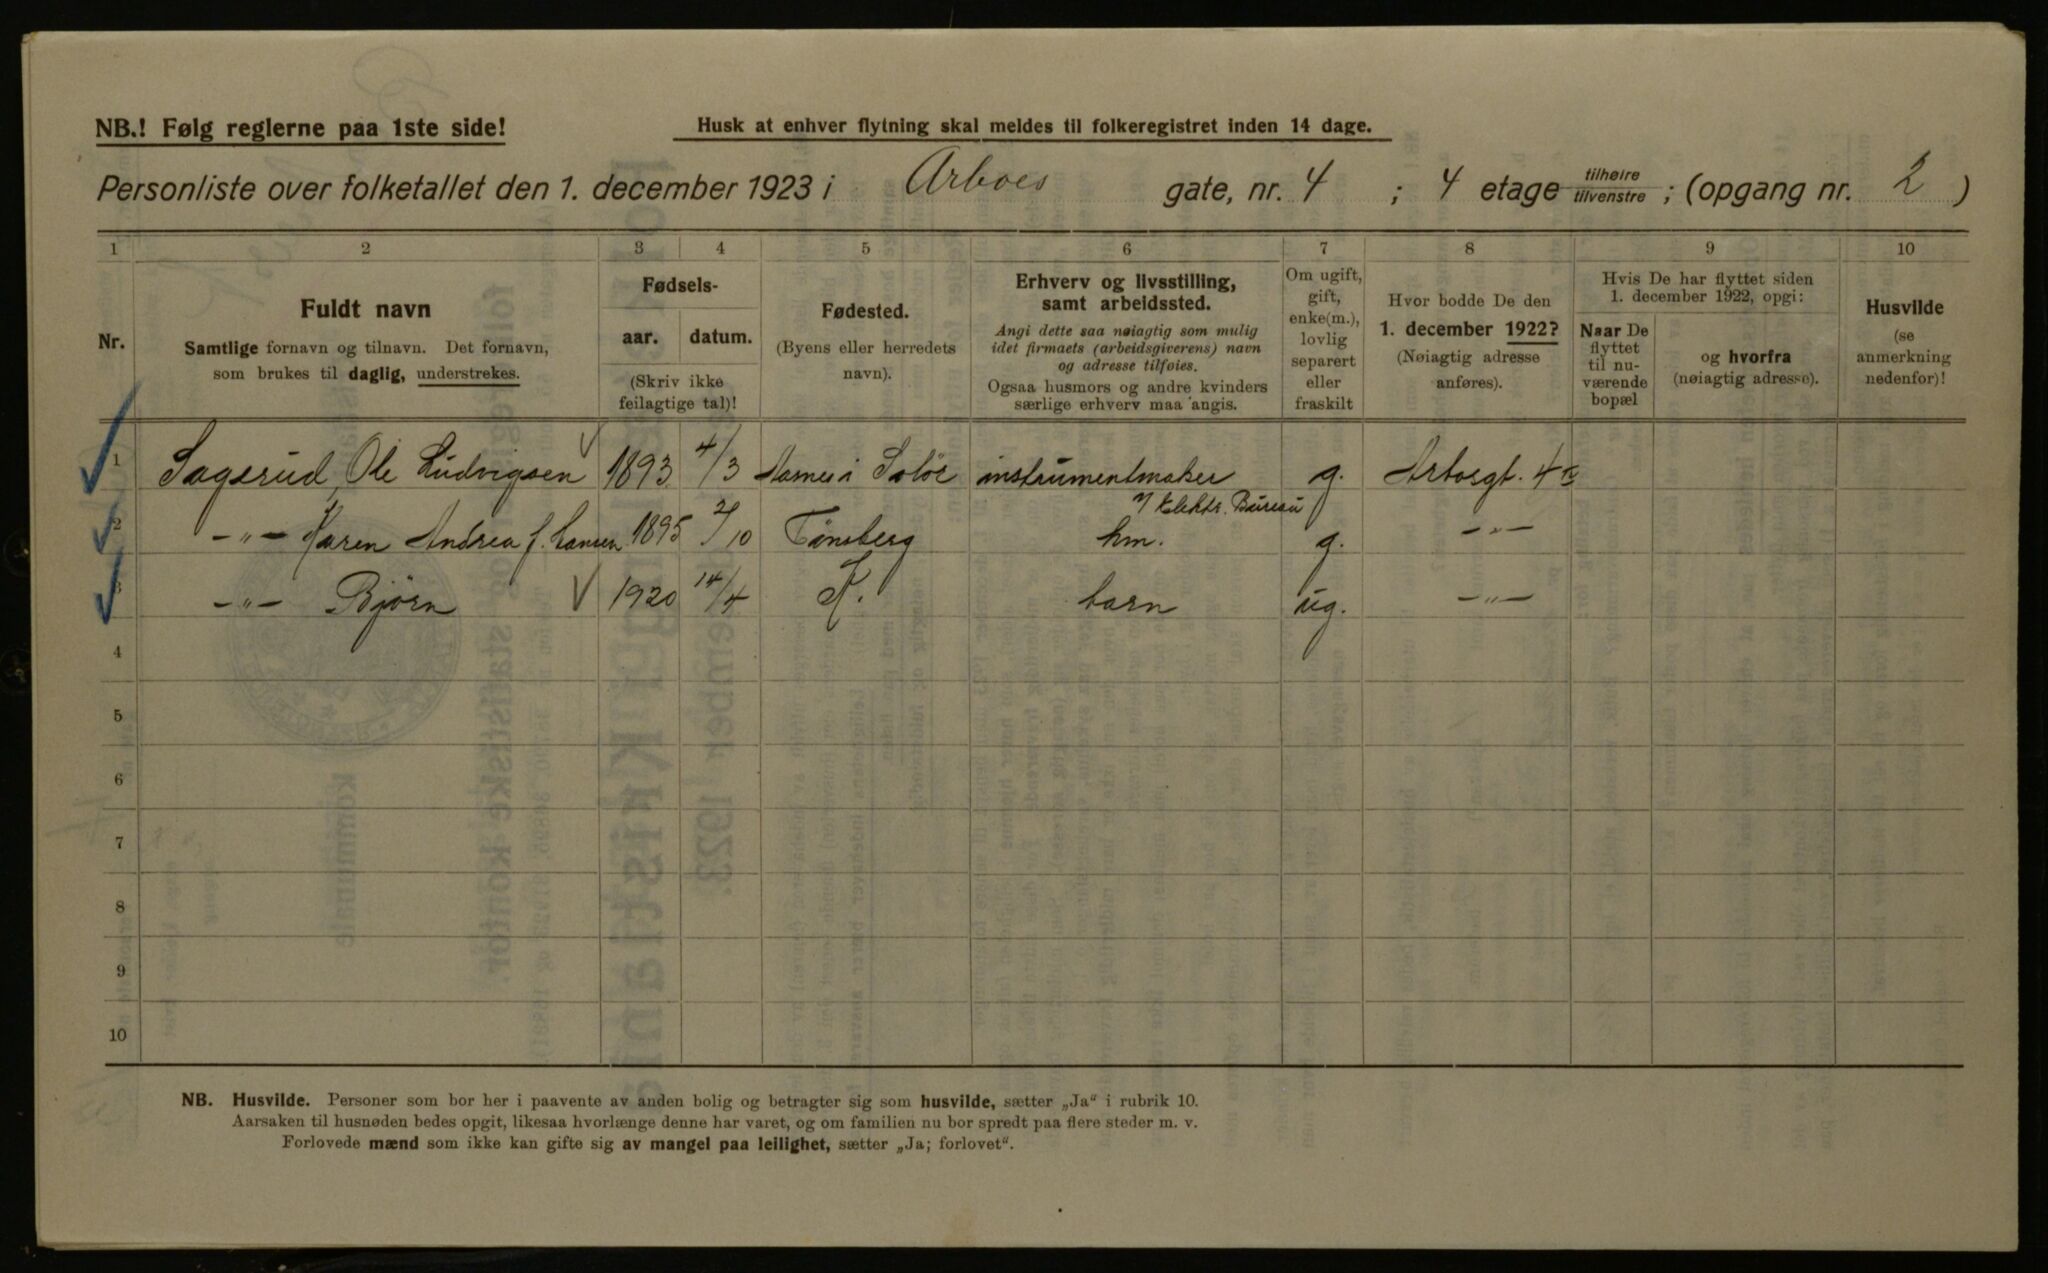 NB.! Følg reglerne paa 1ste side!
Husk at enhver flytning skal meldes til folkeregistret inden 14 dage.
Personliste over folketallet den 1. december 1923 i Arboes gate, nr. 4 ; 4 etage tilhøire tilvenstre ; (opgang nr. 2 )
1 2 3 4 5 6 7 8 9 10
Nr.
Fuldt navn
Samtlige fornavn og tilnavn. Det fornavn,
som brukes til daglig, understrekes.
Fødsels-
aar. datum.
(Skriv ikke
feilagtige tal)!
Fødested.
(Byens eller herredets
navn).
Erhverv og livsstilling,
samt arbeidssted.
Angi dette saa nøiagtig som mulig
idet firmaets (arbeidsgiverens) navn
og adresse tilføies.
Ogsaa husmors og andre kvinders
særlige erhverv maa angis.
Om ugift,
gift,
enke(m.),
lovlig
separert
eller
fraskilt
Hvor bodde De den
1. december 1922?
(Nøiagtig adresse
anføres).
Hvis De har flyttet siden
1. december 1922, opgi:
Naar De
flyttet
til nu-
værende
bopæl
og hvorfra
(nøiagtig adresse).
Husvilde
(se
anmerkning
nedenfor)!
1 Sagsrud, Ole Ludvigsen 1893 4/3 i Solør instrumentmaker g. Arbosgt. 4
Elektr. Bureau
2 —„— Karen Andrea f. Hansen 1895 2/10 Tønsberg hm. g. —„—
3 —„— Bjørn 1920 14/4 K. barn ug. —„—
4
5
6
7
8
9
10
NB. Husvilde. Personer som bor her i paavente av anden bolig og betragter sig som husvilde, sætter „Ja“ i rubrik 10.
Aarsaken til husnøden bedes opgit, likesaa hvorlænge denne har varet, og om familien nu bor spredt paa flere steder m. v.
Forlovede mænd som ikke kan gifte sig av mangel paa leilighet, sætter „Ja; forlovet“.